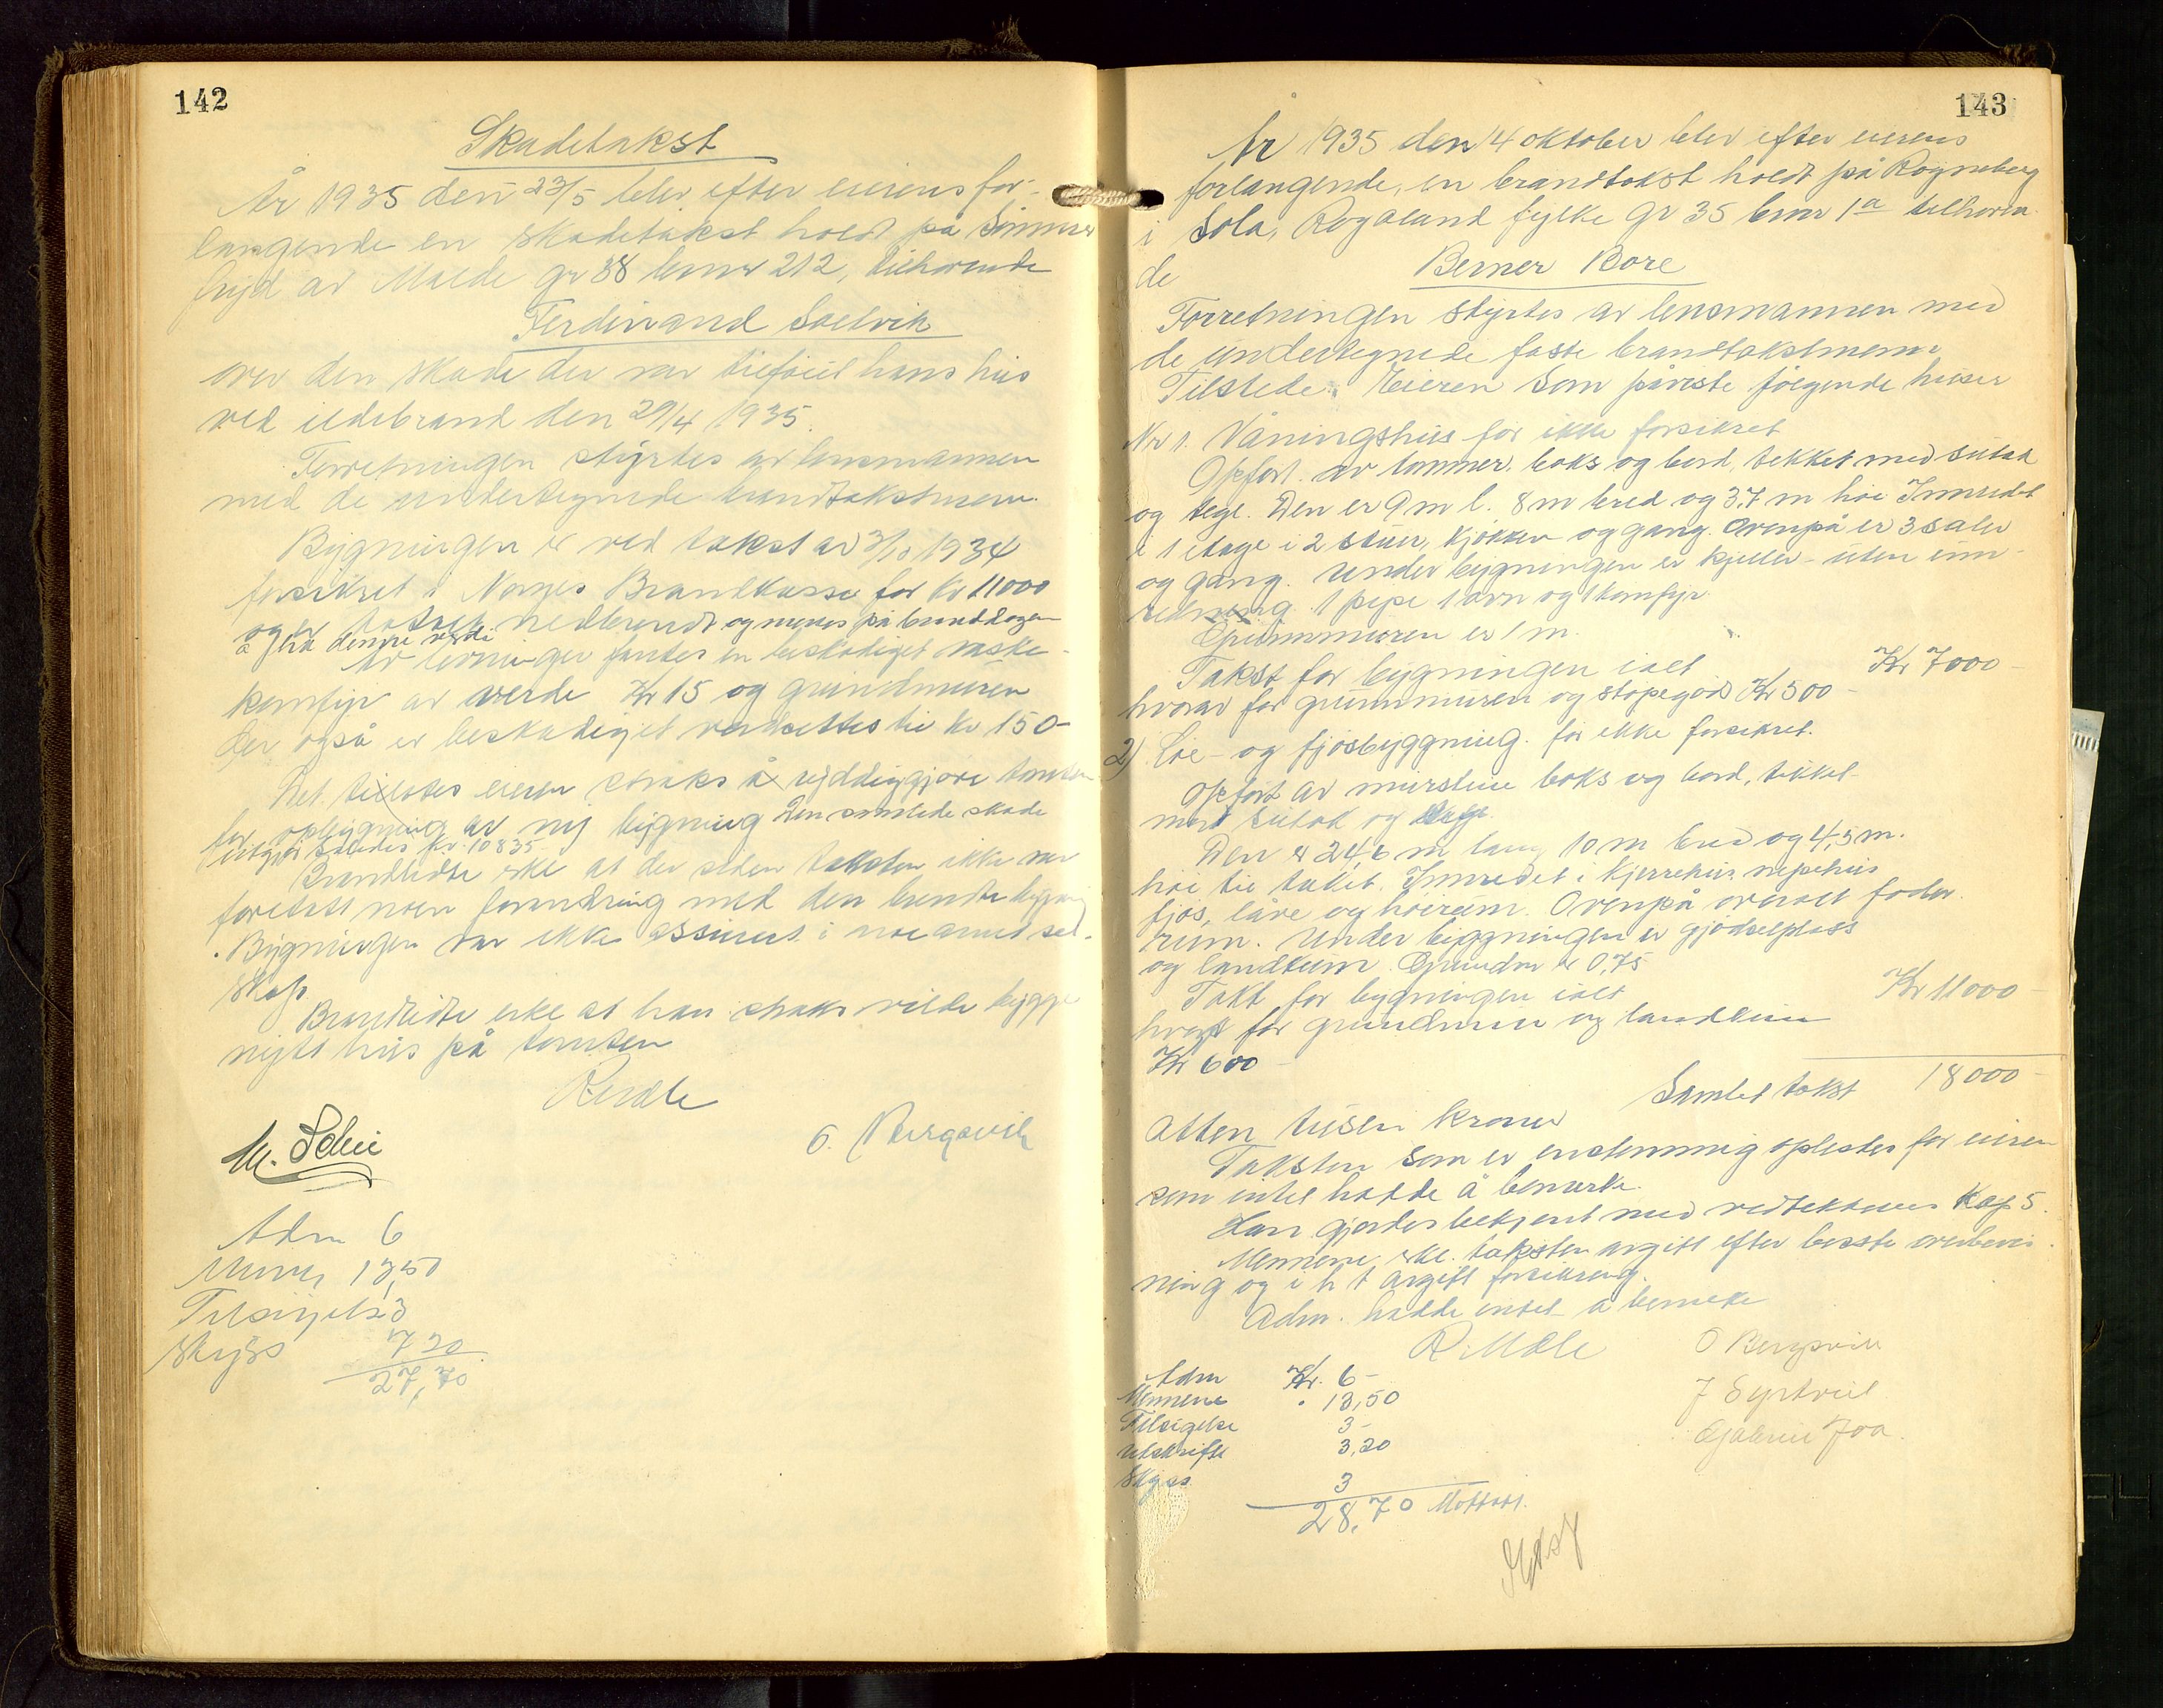 142
Skadetakst
År 1935 den 23/5 blev efter eierens for-
langende en skadetakst holdt på Sommer
fryd av Malde gr 38 bnr 212, tilhørende
Ferdinand Soelvik
over den skade der var tilføiet hans hus
ved ildebrand den 29/4 1935.
Forretningen styrtes av lensmannen
med de undertegnede brandtakstmenn.
Bygningen er ved takst av 3/10 1934
forsikret i Norges Brandkasse for kr 11000
og er totalt nedbrendt og menes på branddagen
å ha denne verdi
Av levninger fantes en beskadiget vaske-
komfyr av verde Kr 15 og grundmuren
der også er beskadiget verdsettes til kr 150-
Det tillotes eieren straks å ryddiggjøre tomten
for opbygning av ny bygning Den samlede skade
utgjør således kr. 10835
Brandlidte erkl at der siden taksten ikke var
foretatt noen forandring med den brendte bygning
. Bygningen var ikke assurert i noe annet sel-
skap.
Brandlidte erkl at han straks vilde bygge
nytt hus på tomten
O. Bergsvik
Adm 6
Menn 13,50
Tilsigelse 3
Skyss 7 20
27,70
143
År 1935 den 14 oktober blev efter eierens
forlangende, en brandtakst holdt på Røyneberg
i Sola, Rogaland fylke gr 35 bnr 1a tilhøren
de Berner Bore
Forretningen styrtes av lensmannen med
de undertegnede faste brandtakstmenn
Tilstede: Eieren som påviste følgende huser
Nr 1. Våningshus før ikke forsikret
Opført av tømmer, boks og bord, tekket med sutak
og tegl. Den er 9 m l. 8 m bred og 3,7 m høi Innredet
i 1 etage i 2 stuer, kjøkken og gang. Ovenpå er 3 saler
og gang. Under bygningen er kjeller - uten inn-
redning. 1 pipe 1 ovn og 1 komfyr.
Grunnmuren er 1 m.
Takst for bygningen ialt Kr 7000-
hvorav for grunnmuren og støpegods Kr 500-
2) Løe- og fjøsbyggning. før ikke forsikret.
Opført av murstein boks og bord, tekket
med sutak og tegl.
Den er 24,6 m lang 10 m bred og 4,5 m.
høi til taket. Innredet i kjerrehus, nepehus
fjøs, låve og høirum. Ovenpå overalt foder
rum. Under byggningen er gjødselplass
og landkum. Grundm er 0,75
Takt for bygningen ialt Kr 11000-
hvorav for grundmur og landkum
Kr 600-
Samlet takst 18000-
Atten tusen kroner
Taksten som er enstemmig oplestes for eieren
som intet hadde å bemerke.
Han gjordes bekjent med vedtektenes Kap 5.
Mennene erkl. taksten avgitt efter beste overbevis
ning og i h t avgitt forsikring.
Adm. hadde intet å bemerke
O Bergsvik
Gabriel Joa.
Adm Kr. 6-
Mennene " 13,50
Tilsigelse 3-
Utskrifts 3,20
Skyss 3
28,70 Mottatt.